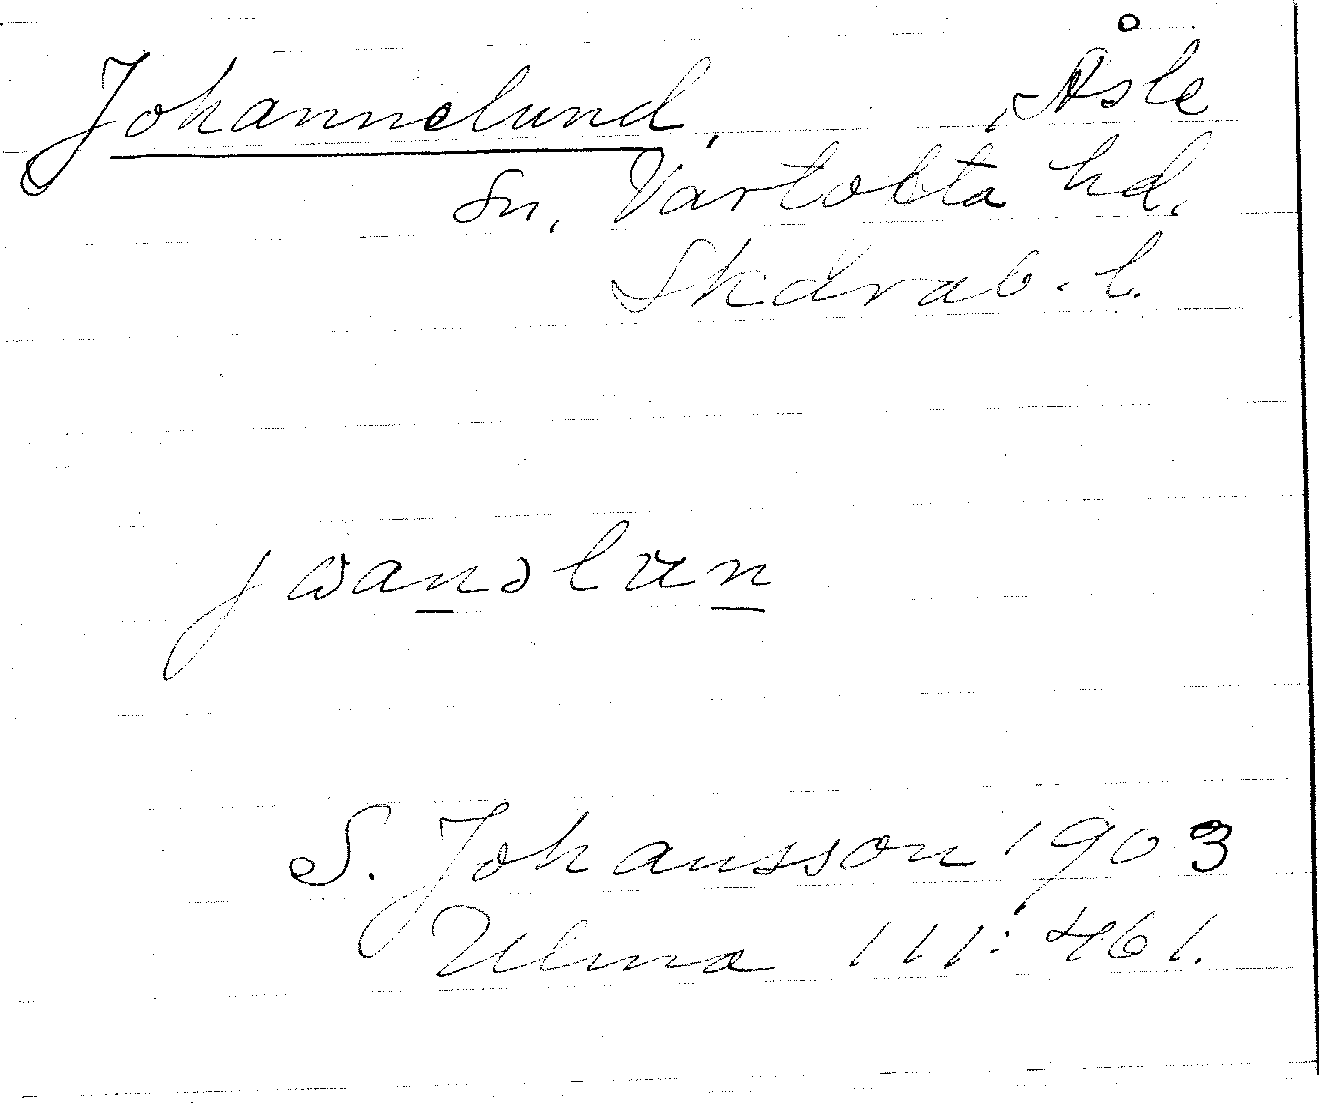 Johannelund, Åsle
sn, Vartofta hd,
Skarab. l.
jωanɔlun
S. Johansson 1903
Ulma 111:461.